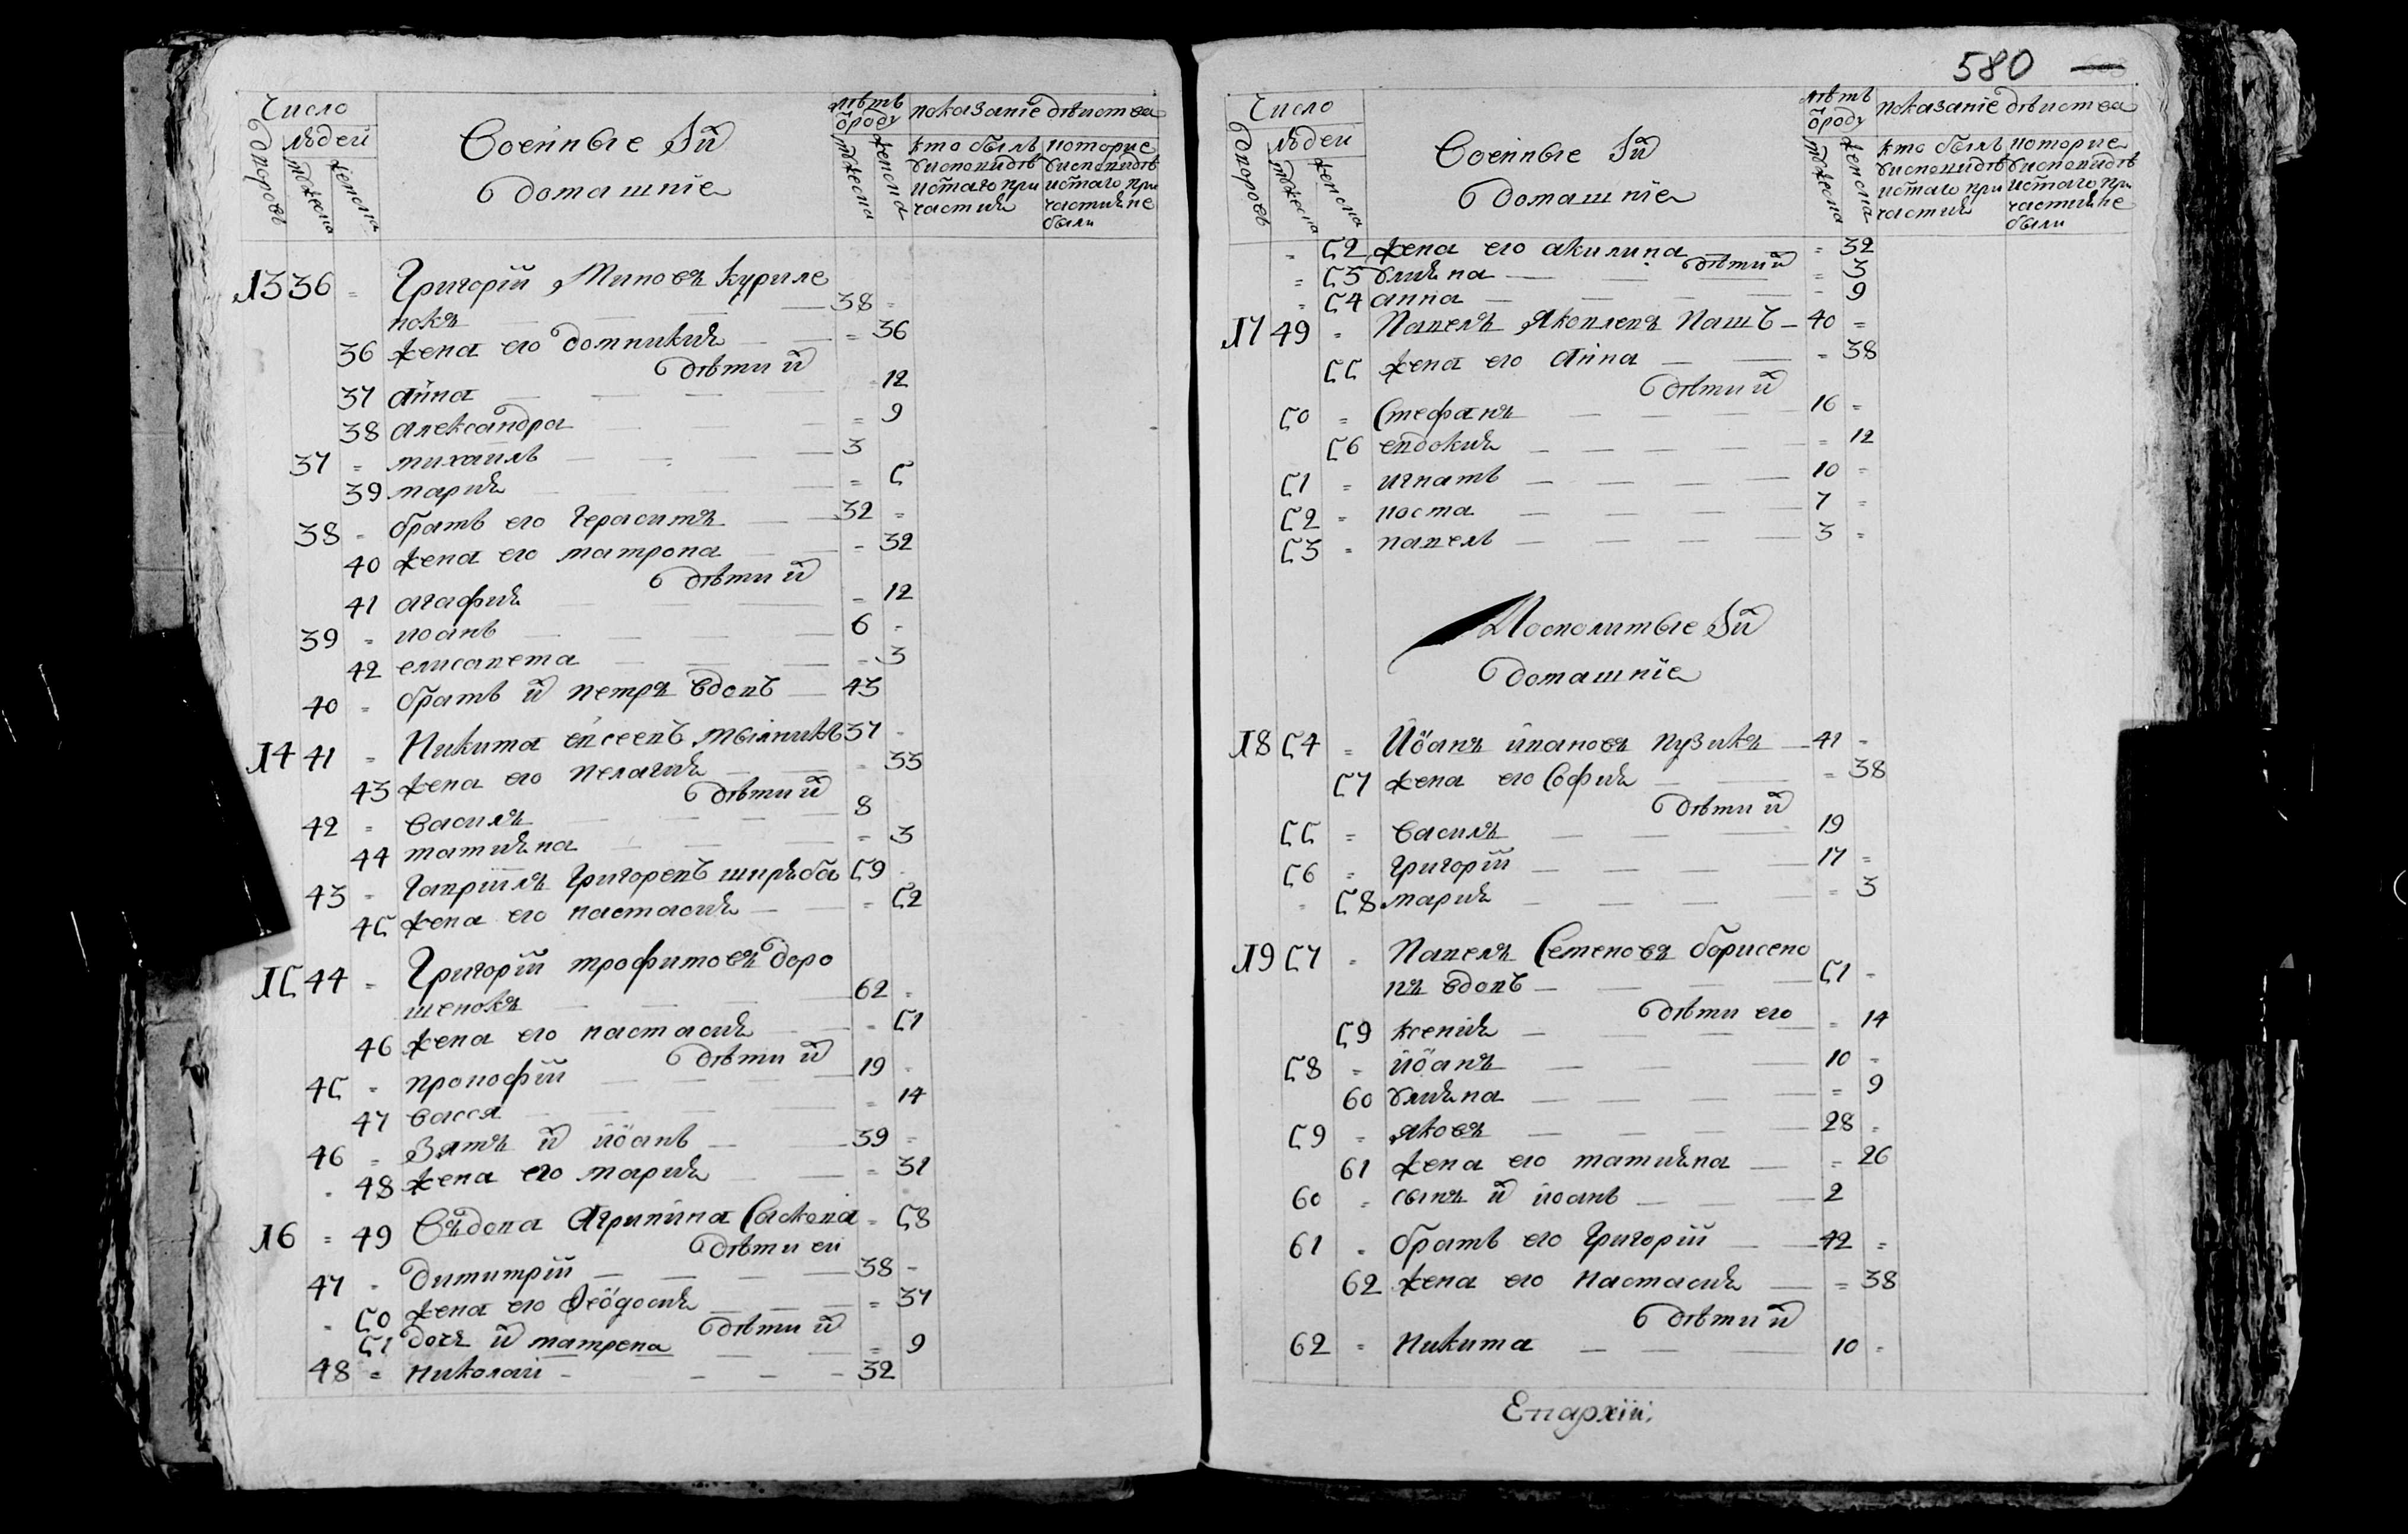 Число
людей
дворовъ
мужеска
женска
Военные Ихъ
домашние
лѣтъ
ѿроду
мужеска
женска
показание дѣиства
кто былъ
уисповидѣ
истаго при
частия
которие
уисповидѣ
истаго при
частия не
были
13 36 = Григорий Миновъ куриле
нокъ 38 =
36 жена его домникия = 36
дѣти ихъ
37 анна = 12
38 александра = 9
37 = михаилъ 3
39 мария = 5
38 = братъ его Герасимъ 32 =
40 жена его матрона = 32
дѣти ихъ
41 агафия = 12
39 = иоанъ 6 =
42 елисавета = 3
40 = братъ ихъ петръ вдовъ 43
14 41 = Никита евсеевъ мѣлникъ 37 =
43 жена его пелагия = 33
дѣти ихъ
42 = василъ 8
44 татияна = 3
43 = Гавриилъ Григоревъ ширяба 59 =
45 жена его настасия = 52
15 44 = Григорий трофимовъ доро
шенокъ 62 =
46 жена его настасия = 51
дѣти ихъ
45 = прокофий 19 =
47 васся = 14
46 = Зятъ ихъ иоанъ 39 =
48 жена его мария = 31
16 = 49 Въдова Агрипина Саскова = 58
дѣти еи
47 = димитрий 38 =
50 жена его Феодосия = 37
дѣти ихъ
51 дочъ ихъ матрена = 9
48 = николаи 32
580
Число
людей
дворовъ
мужеска
женска
Военные Ихъ
домашние
лѣтъ
ѿроду
мужеска
женска
показание дѣиства
кто былъ
уисповидѣ
истаго при
частия
которие
уисповидѣ
истаго при
частия не
были
= 52 жена его акилина = 32
дѣти ихъ
= 53 улияна = 3
= 54 анна = 9
17 49 = Павелъ Яковлевъ Пашъ 40 =
55 жена его Анна = 38
дѣти ихъ
50 = Стефанъ 16 =
56 евдокия = 12
51 = игнатъ 10 =
52 = коста 7 =
53 = павелъ 3 =
Посполитые Ихъ
домашние
18 54 = Иоанъ ивановъ пузикъ 41 =
57 жена его София = 38
дѣти ихъ
55 = василъ 19
56 = Григорий 17 =
= 58 мария = 3
19 57 = Павелъ Семеновъ борисено
въ вдовъ 51 =
дѣти его
59 ксения = 14
58 = иоанъ 10 =
60 улияна = 9
59 = яковъ 28 =
61 жена его татияна = 26
60 = сынъ ихъ иоанъ 2
61 = братъ его Григорий 42 =
62 жена его Настасия = 38
дѣти ихъ
62 = Никита 10 =
Епархии: